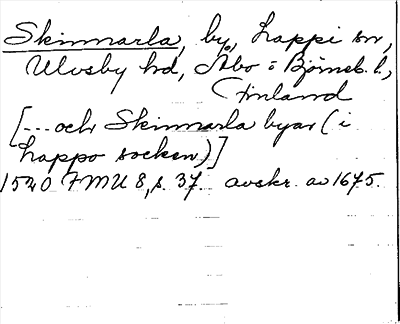 Skinnarla, by, Lappi sn,
Ulvsby hd, Åbo o Björneb. l.,
Finland
[... och Skinnarla byar (i
Lappo socken)]
1520 FMU 8, s. 37. avskr. av 1675.